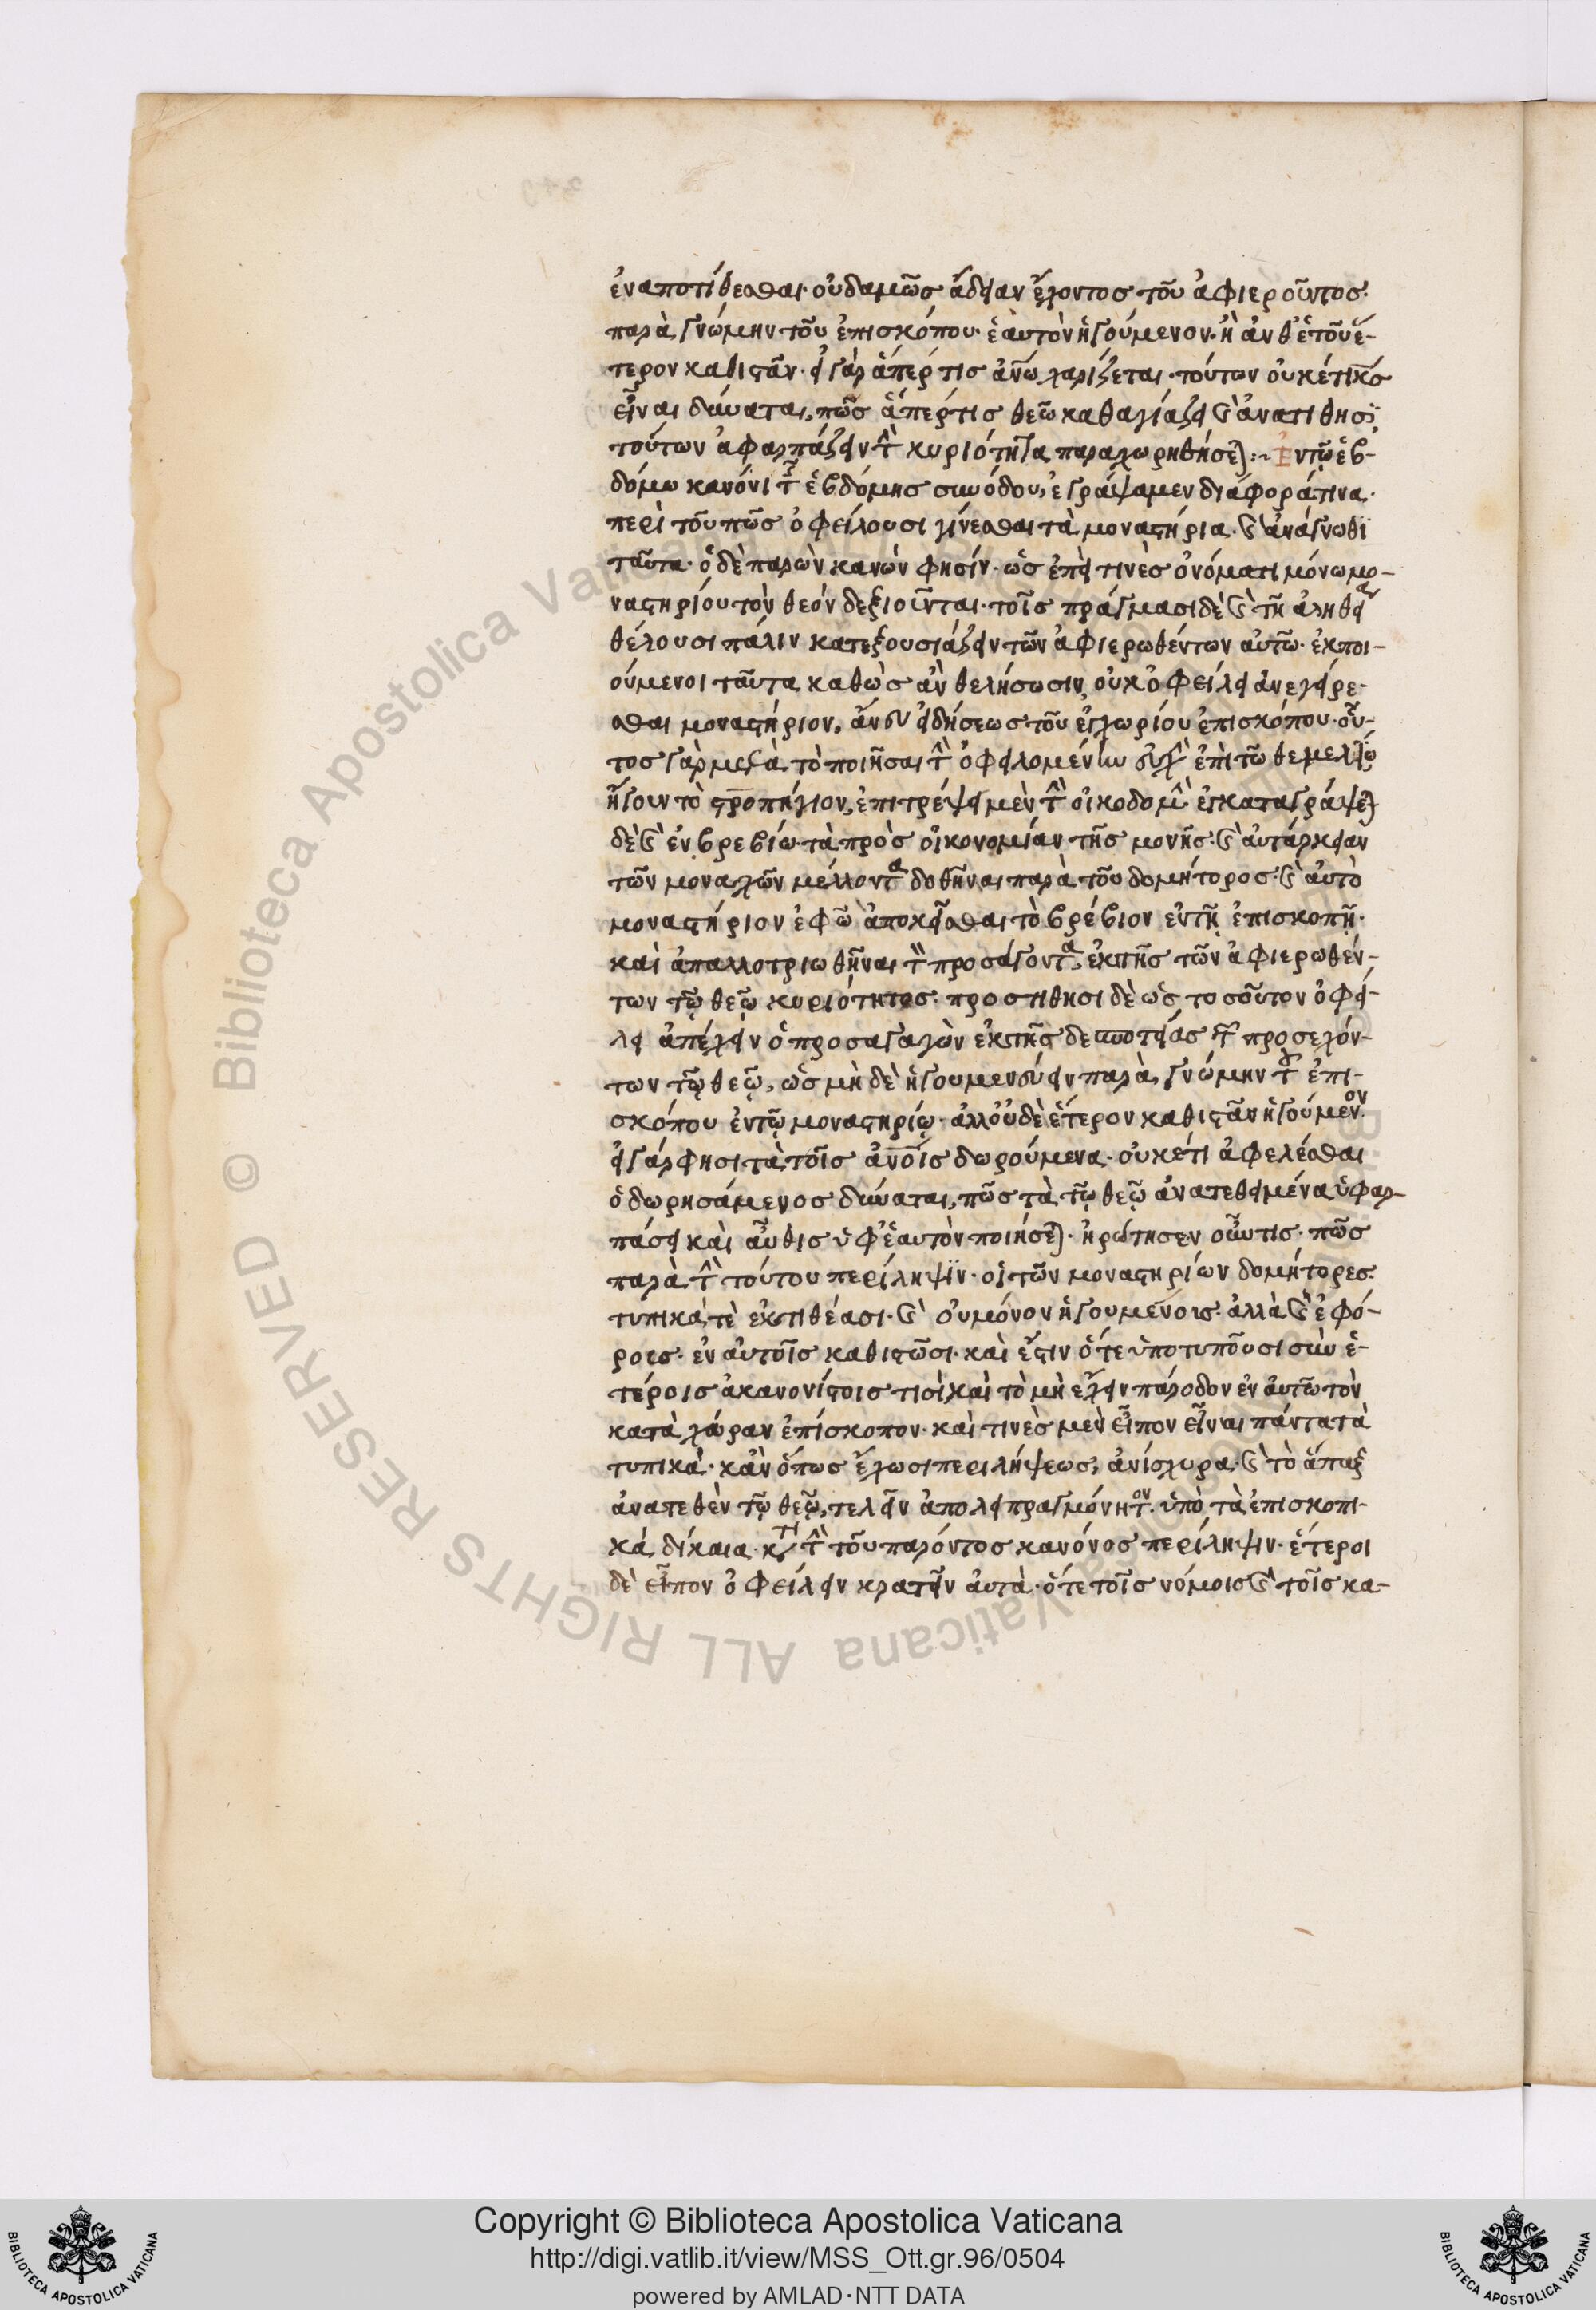 ἐναποτίθεσθαι· οὐδαμῶς ἄδειαν ἔχοντος τοῦ ἀφιεροῦντος·
παρὰ γνώμην τοῦ ἐπισκόπου· ἑαυτὸν ἡγούμενον· ἢ ἀνθ' ἑτοῦ ἕ-
τερον καθιστᾶν· εἰ γὰρ ἅπερ τις ἀνω χαρίζεται· τούτων οὐκέτι κς
εἶναι δύναται, πῶς ἅπερ τις θεῶ καθαγιάζει καὶ ἀνατίθησι,
τούτων ἀφαρπάζειν τὴν κυριότητα παραχωρηθήσεται :~ Ἐν τῷ ἑβ-
δόμω κανόνι τῆς ἑβδόμης συνόδου, ἐγράψαμεν διάφορά τινα·
περὶ τοῦ πῶς ὀφείλουσι γίνεσθαι τὰ μοναστήρια· καὶ ἀνάγνωθι
ταῦτα· ὁ δὲ παρὼν κανών φησίν· ὡς ἐπεὶ τινὲς ὀνόματι μόνω μο-
ναστηρίου τὸν θεὸν δεξιοῦνται· τοῖς πράγμασι δὲ καὶ τῆ ἀληθεία
θέλουσι πάλιν κατεξουσιάζειν τῶν ἀφιερωθέντων αὐτῶ· ἐκποι-
ούμενοι ταῦτα καθὼς ἂν θελήσωσιν, οὐκ ὀφείλει ἀνεγείρε-
σθαι μοναστήριον, ἄνευ εἰδήσεως τοῦ ἐγχωρίου ἐπισκόπου· οὗ-
τος γὰρ μετὰ τὸ ποιῆσαι τὴν ὀφειλομένην εὐχὴν ἐπὶ τῶ θεμελίῳ,
ἤγουν τὸ στροπήγιον, ἐπιτρέψει μὲν τὴν οἰκοδομὴν ἐγκαταγράψεται
δὲ καὶ ἐν βρεβίω· τὰ πρὸς οἰκονομίαν τῆς μονῆς· καὶ αὐτάρκειαν
τῶν μοναχῶν μέλλοντα δοθῆναι παρὰ τοῦ δομήτορος· καὶ αὐτὸ
μοναστήριον ἐφῶ ἀποκεῖσθαι τὸ βρέβιον ἐν τῇ ἐπισκοπῇ·
καὶ ἀπαλλοτριωθῆναι τὸν προσάγοντα, ἐκ τῆς τῶν ἀφιερωθέν-
των τῷ θεῷ κυριότητος· προστίθησι δὲ ὡς τοσοῦτον ὀφεί-
λει ἀπέχειν ὁ προσαγαγὼν ἐκ τῆς δεσποτείας τῶν προσεχόν-
των τῷ θεῷ, ὡς μὴ δὲ ἡγουμενεύειν παρὰ γνώμην τοῦ ἐπι-
σκόπου ἐν τῷ μοναστηρίῳ· ἀλλ' οὐδὲ ἕτερον καθιστᾶν ἡγούμενον·
εἰ γάρ φησι τὰ τοῖς ἀνοις δωρούμενα· οὐκέτι ἀφελέσθαι
ὁ δωρησάμενος δύναται, πῶς τὰ τῷ θεῷ ἀνατεθειμένα ὑφαρ-
πάσει καὶ αὖθις ὑφ' ἑαυτὸν ποιήσεται· ἠρώτησεν οὖν τις· πῶς
παρὰ τὴν τούτου περίληψιν· οἱ τῶν μοναστηρίων δομήτορες·
τυπικά τὲ ἐκτιθέασι· καὶ οὐ μόνον ἡγουμένοις· ἀλλὰ καὶ ἐφό-
ροις· ἐν αὐτοῖς καθιστῶσι· καὶ ἔστιν ὅτε ὑποτυποῦσι σὺν ἑ-
τέροις ἀκανονίστοις τισὶ καὶ τὸ μὴ ἔχειν πάροδον ἐν αὐτῶ τὸν
κατὰ χώραν ἐπίσκοπον· καὶ τινὲς μὲν εἶπον εἶναι πάντα τὰ
τυπικὰ· κἂν ὅπως ἔχωσι περιλήψεως, ἀνίσχυρα· καὶ τὸ ἅπαξ
ἀνατεθὲν τῷ θεῷ, τελεῖν ἀπολειπραγμόνητον· ὑπὸ τὰ ἐπισκοπι-
κά δίκαια· κατὰ τὴν τοῦ παρόντος κανόνος περίληψιν· ἕτεροι
δὲ εἶπον ὀφείλειν κρατεῖν αὐτὰ· ὅτε τοῖς νόμοις καὶ τοῖς κα-
Copyright © Biblioteca Apostolica Vaticana
http://digi.vatlib.it/view/MSS_Ott.gr.96/0504
powered by AMLAD·NTT DATA